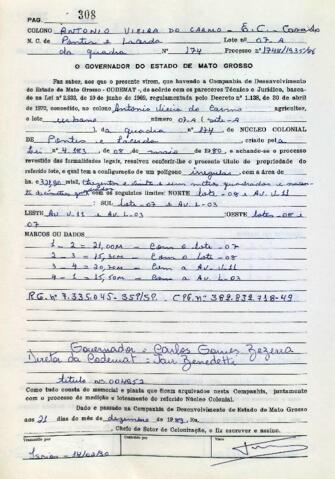 PAG. 308
COLONO ANTONIO VIEIRA DO CARMO - E.C. - Casado
N. C. de Pontes e Lacerda Lote nº 07-A
da quadra Nº 174 Processo nº 1748/1935/86
O GOVERNADOR DO ESTADO DE MATO GROSSO
Faz saber, aos que o presente virem, que havendo a Companhia de Desenvolvimento
do Estado de Mato Grosso - CODEMAT -, de acôrdo com os pareceres Técnico e Jurídico, basea-
do na Lei nº 2.933, de 19 de junho de 1969, regulamentada pelo Decreto nº 1.138, de 30 de abril
de 1970, concedido, ao colono Antonio Vieira do Carmo agricultor,
o lote urbano número 07-A (sete-A
), da quadra nº 174, DE NÚCLEO COLONIAL
DE Pontes e Lacerda criado pela
Lei nº 4.183, de 08 de maio de 1980, e achando-se o processo
revestido das formalidades legais, resolveu conferir-lhe o presente título de propriedade do
referido lote, o qual tem a configuração de um polígono irregular, com a área de
ha. 321,90 m2. (trezentos e vinte e um metros quadrados e noven-
ta decímetros quadrados) com os seguintes limites: NORTE lotes-08 e
: SUL lote-07 e Av. L-03
LESTE Av. V.11 e Av. L-03 :OESTE lotes-08 e
07
MARCOS OU DADOS
1 - 2 = 21,00M - Com o lote-07
2 - 3 = 15,30M - Com o lote-08
3 - 4 = 20,30M - Com a Av. V.11
4 - 1 = 15,50M - Com a Av. L-03
RG. nº 7.335.045-SSP/SP. CPF. nº 382.872.718-49
Governador - Carlos Gomes Bezerra
Diretor da Codemat: Jair Benedetti
título nº 004852
Como tudo consta do memorial e planta que ficam arquivados nesta Companhia, juntamente
com o processo de medição e loteamento do referido Núcleo Colonial.
Dado e passado na Companhia de Desenvolvimento do Estado de Mato Grosso
aos 21 dias do mês de dezembro de 1989. Eu,
, Chefe do Setor de Colonização, o fiz escrever e assino.
Transcrito por
Conferido
Visto